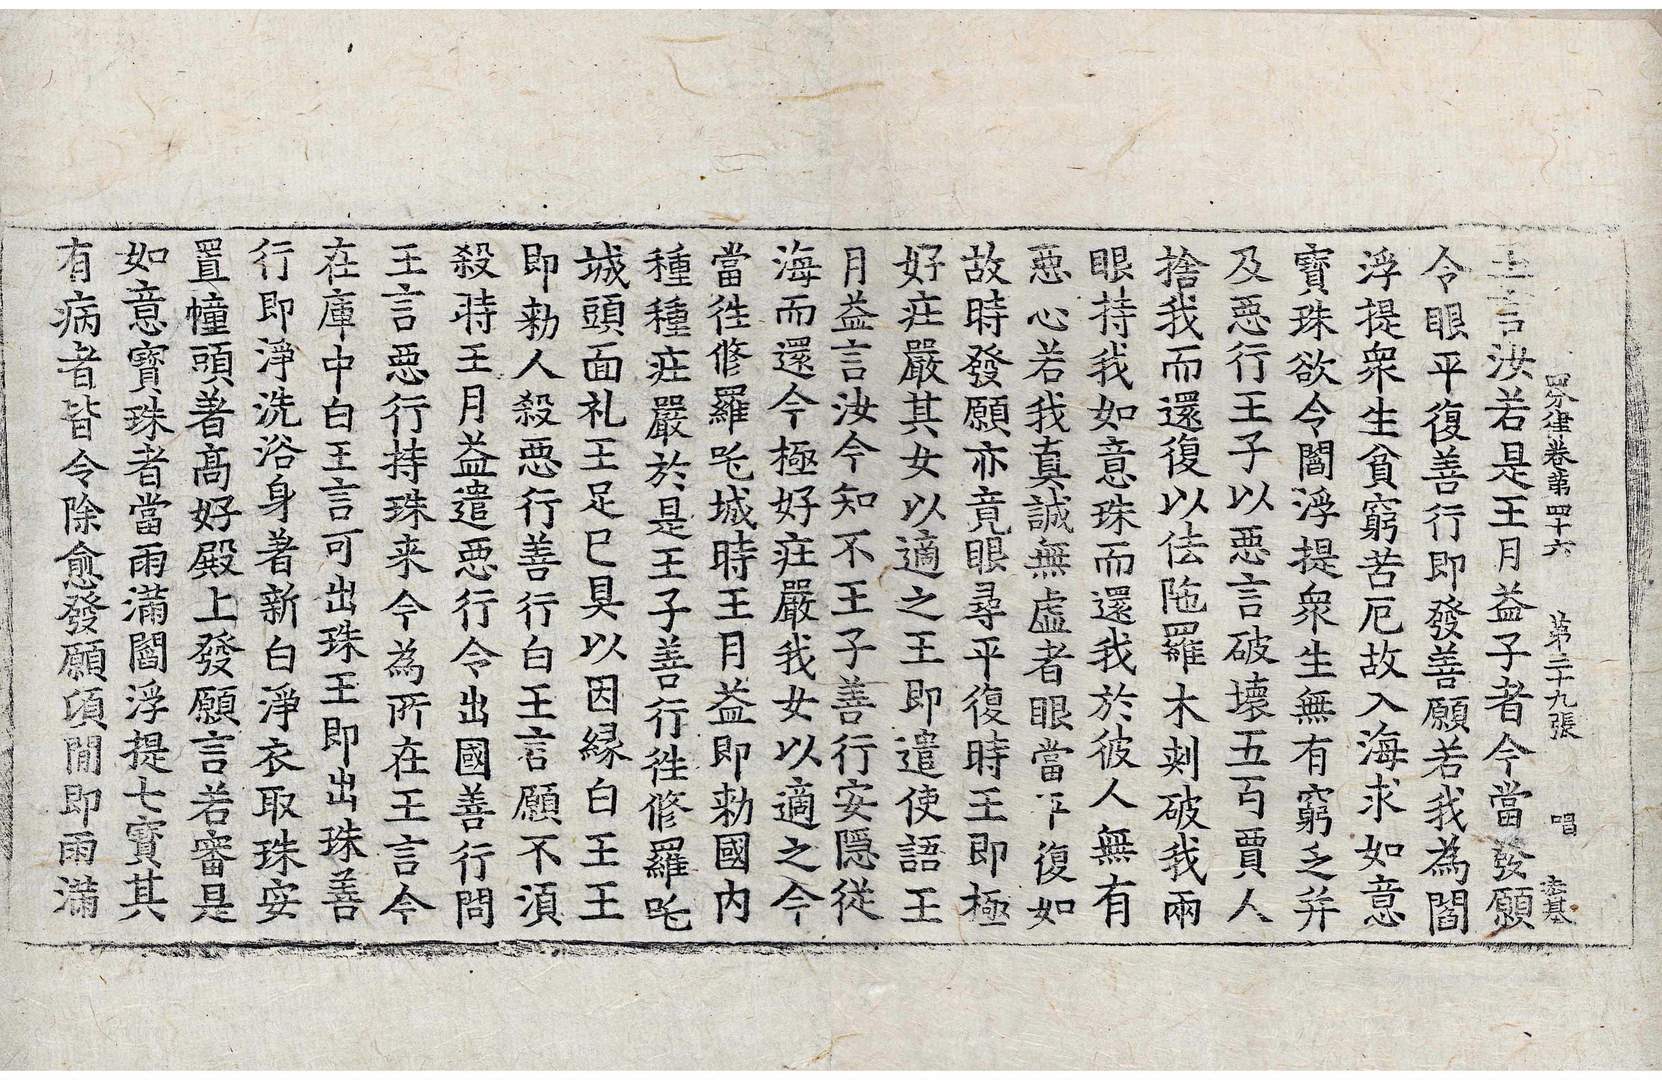 四分律卷第四十六 第二十九張 唱
王言汝若是王月益子者今當發願
令眼平復善行即發善願若我為閻
浮提衆生貧窮苦厄故入海求如意
寶珠欲令閻浮提衆生無有窮乏并
及惡行王子以惡言破壞五百賈人
捨我而還復以佉陁羅木刾破我兩
眼持我如意珠而還我於彼人無有
惡心若我真誠無虛者眼當平復如
故時發願亦竟眼尋平復時王即極
好疘嚴其女以適之王即遣使語王
月益言汝今知不王子善行安隱從
海而還今極好疘嚴我女以適之今
當徃修羅吒城時王月益即勑國內
種種疘嚴於是王子善行徃修羅吒
城頭面礼王足已具以因緣白王王
即勑人殺惡行善行白王言願不湏
殺時王月益遣惡行令出國善行問
王言惡行持珠来今為所在王言今
在庫中白王言可出珠王即出珠善
行即淨洗浴身著新白淨衣取珠安
置幢頭著髙好殿上發願言若審是
如意寶珠者當雨滿閻浮提七寶其
有病者皆令除愈發願湏閒即雨滿